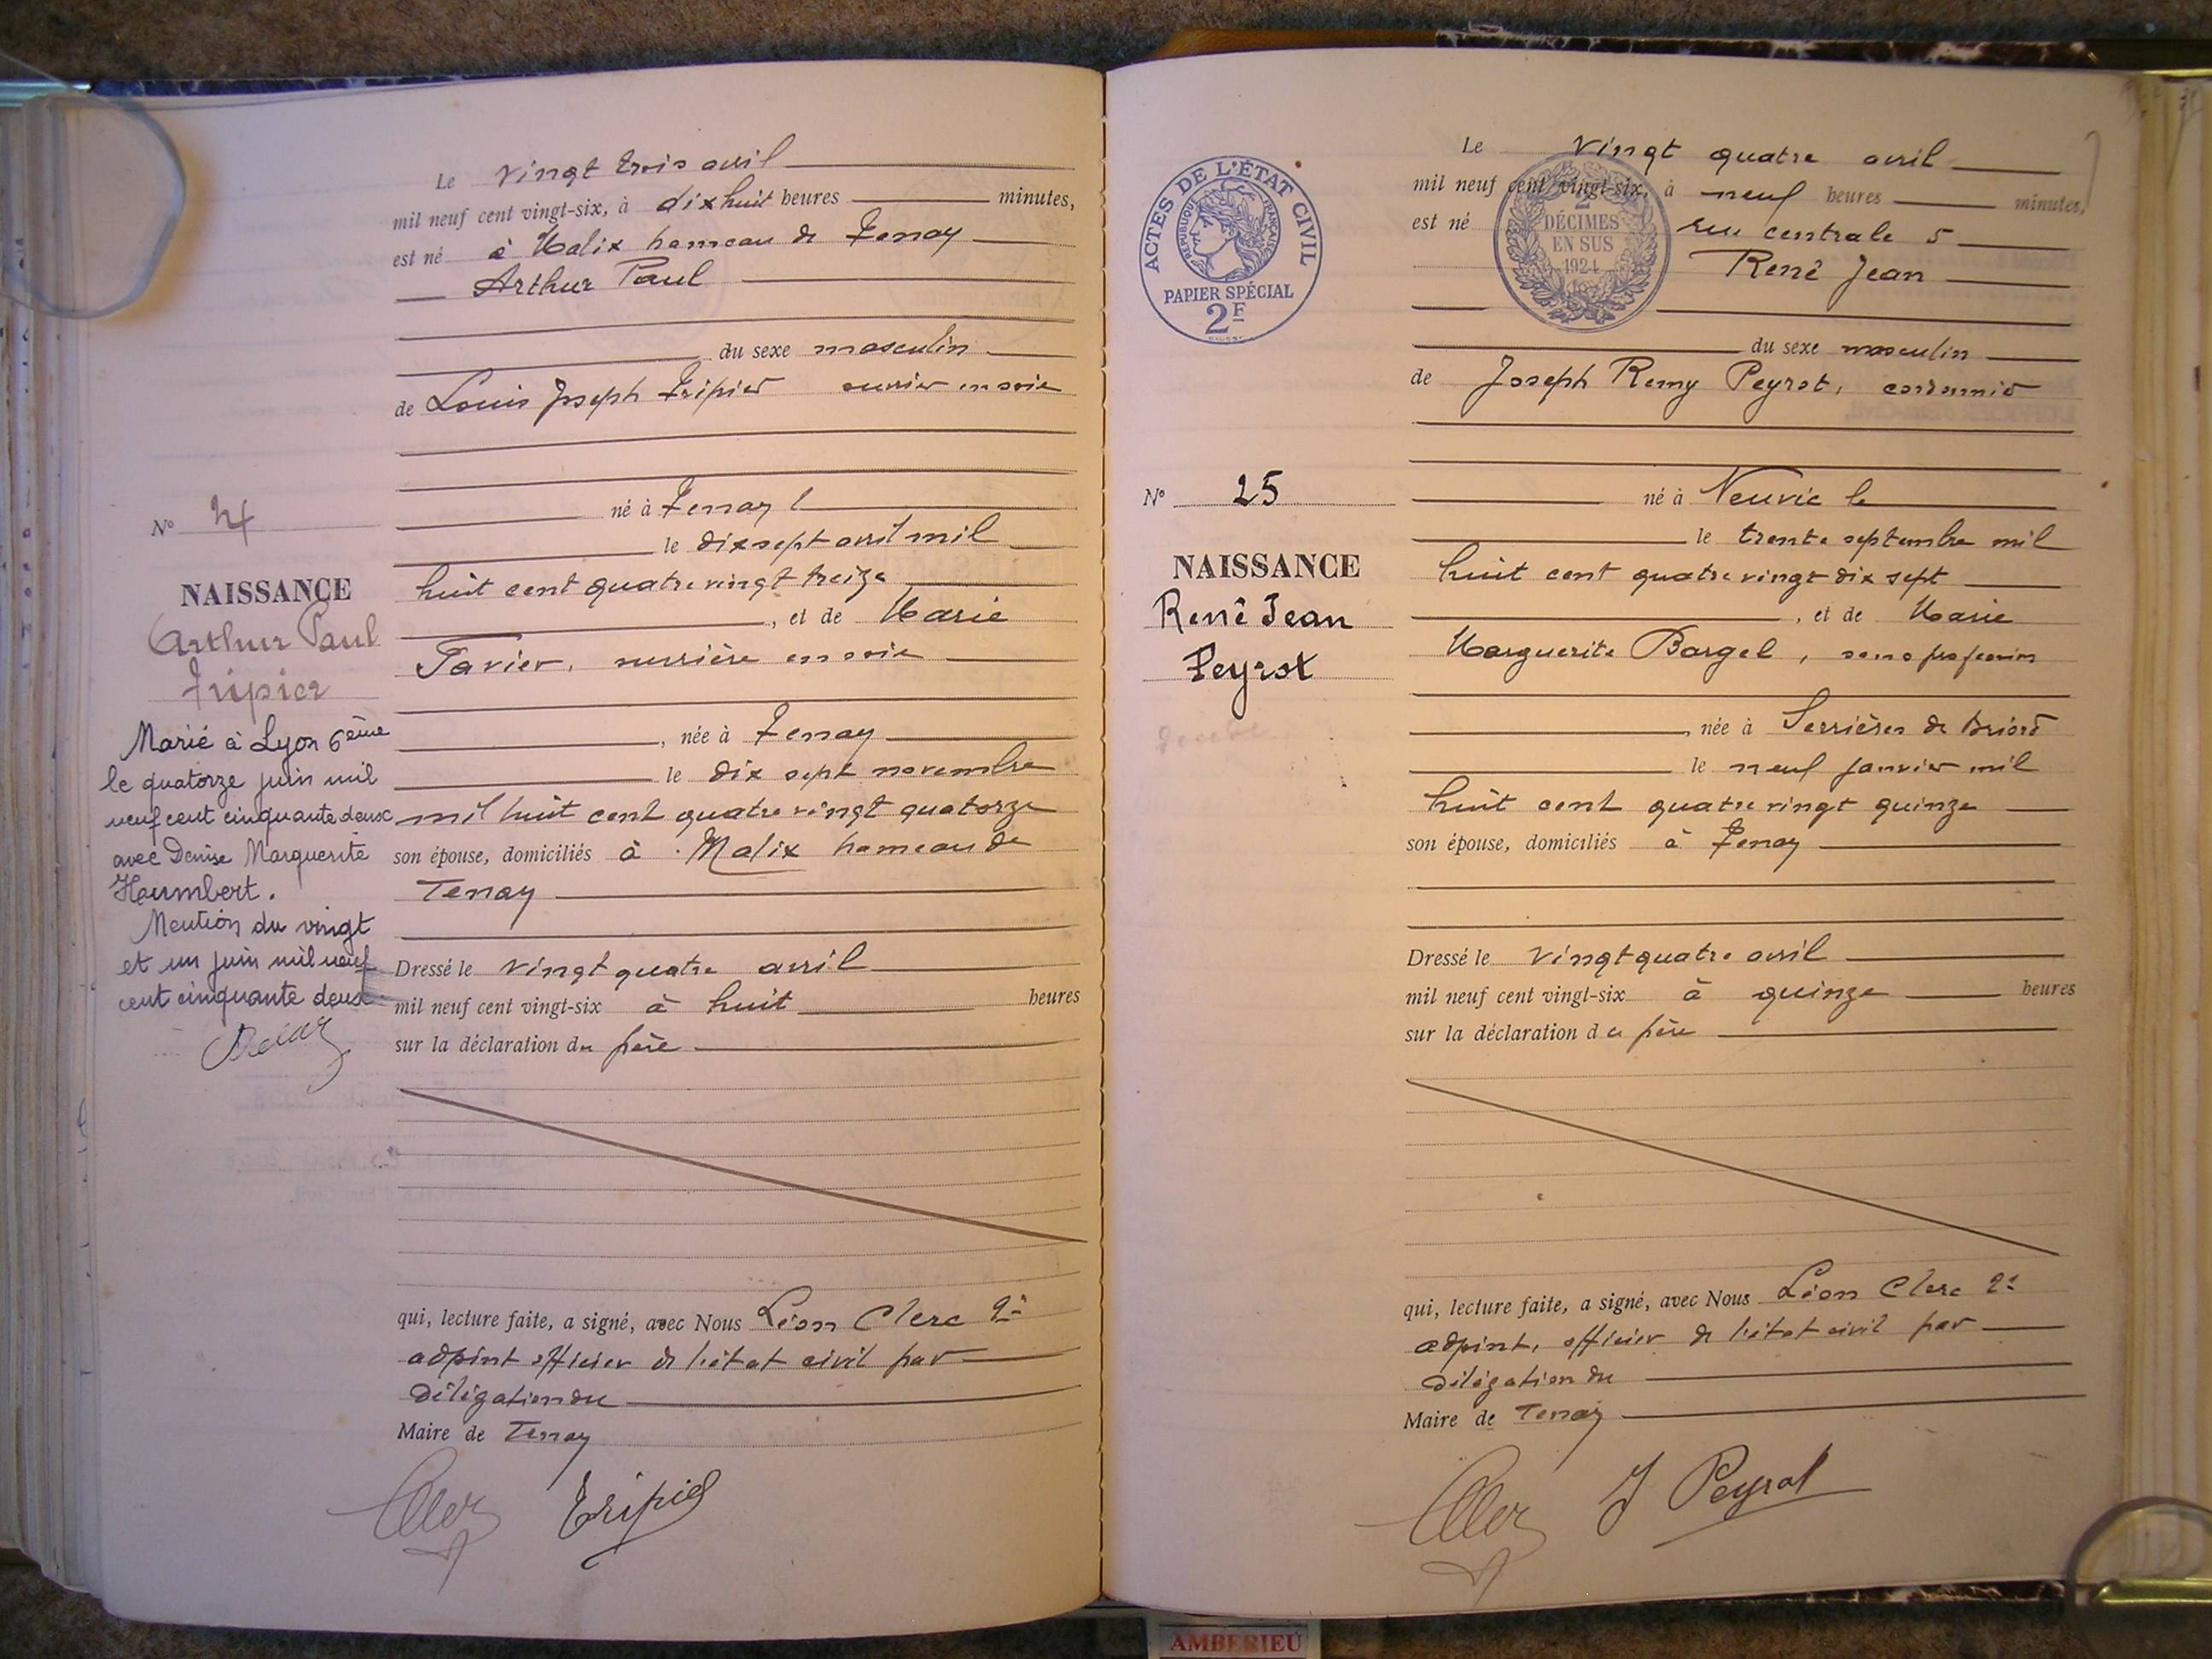 Le vingt trois avril
mil neuf cent vingt-six, à dix huit heures minutes,
est né à Malix hameau de Tenay
Arthur Paul
du sexe masculin
de Louis Joseph Tripier ouvrier en soie
né à Tenay
le dix sept avril mil
huit cent quatre vingt treize
, et de Marie
Tavier, ouvrière en soie
, née à Tenay
le dix sept novembre
mil huit cent quatre vingt quatorze
son épouse, domiciliés à Malix hameau de
Tenay
Dressé le vingt quatre avril
mil neuf cent vingt-six à huit heures
sur la déclaration du père
qui, lecture faite, a signé, avec Nous Léon Clerc 2e
adjoint officier de l'état civil par
délégation du
Maire de Tenay
Tripier
N° 24
NAISSANCE
Arthur Paul
Tripier
Marié à Lyon 6ème
le quatorze juin mil
neuf cent cinquante deux
avec Denise Marguerite
Humbert.
Mention du vingt
et un juin mil neuf
cent cinquante deux
ACTES DE L'ÉTAT CIVIL
RÉPUBLIQUE FRANÇAISE
PAPIER SPÉCIAL
2F
2
DÉCIMES
EN SUS
1924
N° 25
NAISSANCE
René Jean
Peyrot
Le vingt quatre avril
mil neuf cent vingt-six, à neuf heures minutes,
est né rue centrale 5
René Jean
du sexe masculin
de Joseph Remy Peyrot, cordonnier
né à Neuvic le
le trente septembre mil
huit cent quatre vingt dix sept
, et de Marie
Marguerite Bargel, sans profession
, née à Serrières de Briord
le neuf janvier mil
huit cent quatre vingt quinze
son épouse, domiciliés à Tenay
Dressé le vingt quatre avril
mil neuf cent vingt-six à quinze heures
sur la déclaration du père
qui, lecture faite, a signé, avec Nous Léon Clerc 2e
adjoint, officier de l'état civil par
délégation du
Maire de Tenay
J Peyrot
AMBERIEU